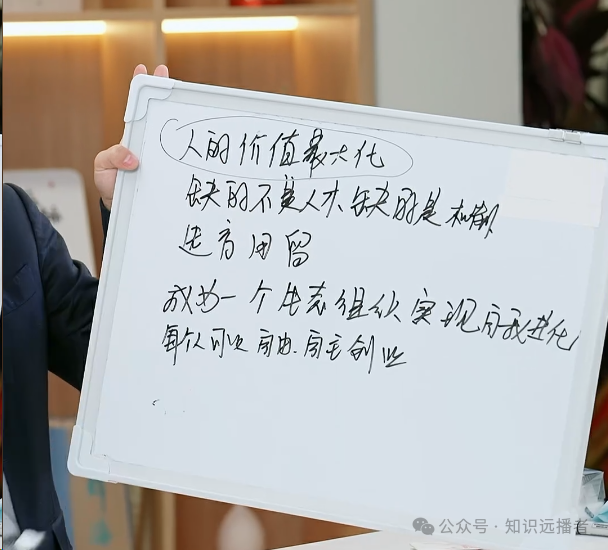 人的价值最大化
缺的不是人才缺的是机制
选育用留
成为一个生态组织实现自我进化
每个人可以自由、自主创业
公众号·知识远播者